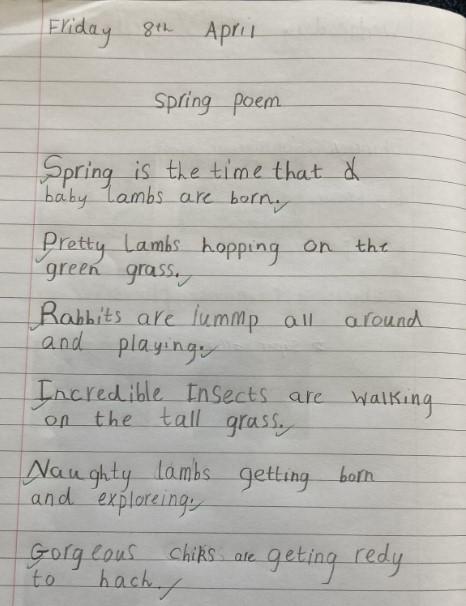 Friday 8th April
Spring poem
Spring is the time that
baby lambs are born.
Pretty lambs hopping on the
green grass.
Rabbits are lummp all around
and playing.
Incredible Insects are walking
on the tall grass.
Naughty lambs getting born
and exploreing.
Gorgeous chiks are geting redy
to hach.